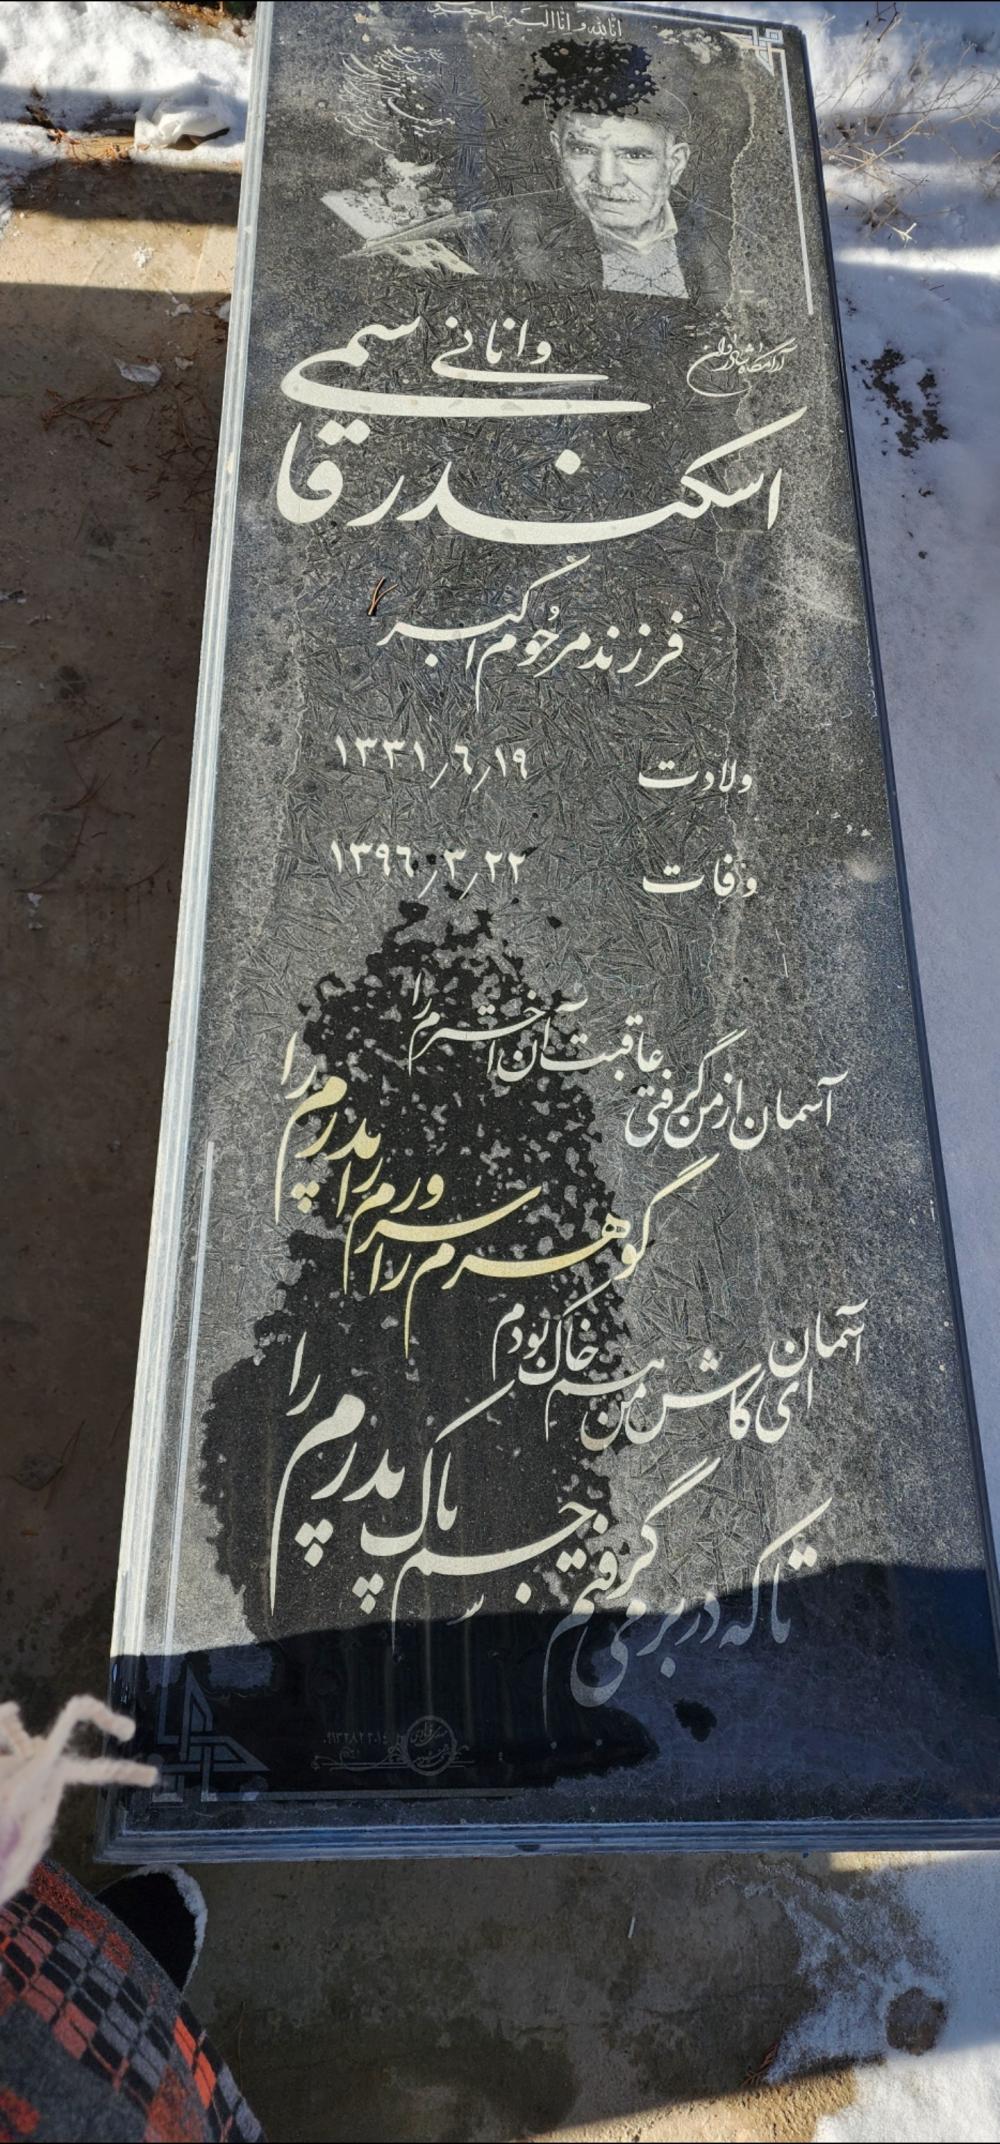 انا لله و انا الیه راجعون
آرامگاه شادروان
اسکندر قاسمی
وانانی
فرزند مرحوم اکبر
ولادت ۱۳۳۱/۶/۱۹
وفات ۱۳۹۶/۳/۲۲
آسمان از من گرفتی عاقبت آن اخترم را
گوهرم را سرورم را پدرم را
آسمان ای کاش من هم خاک بودم
تا که در بر می گرفتم جسم پاک پدرم را